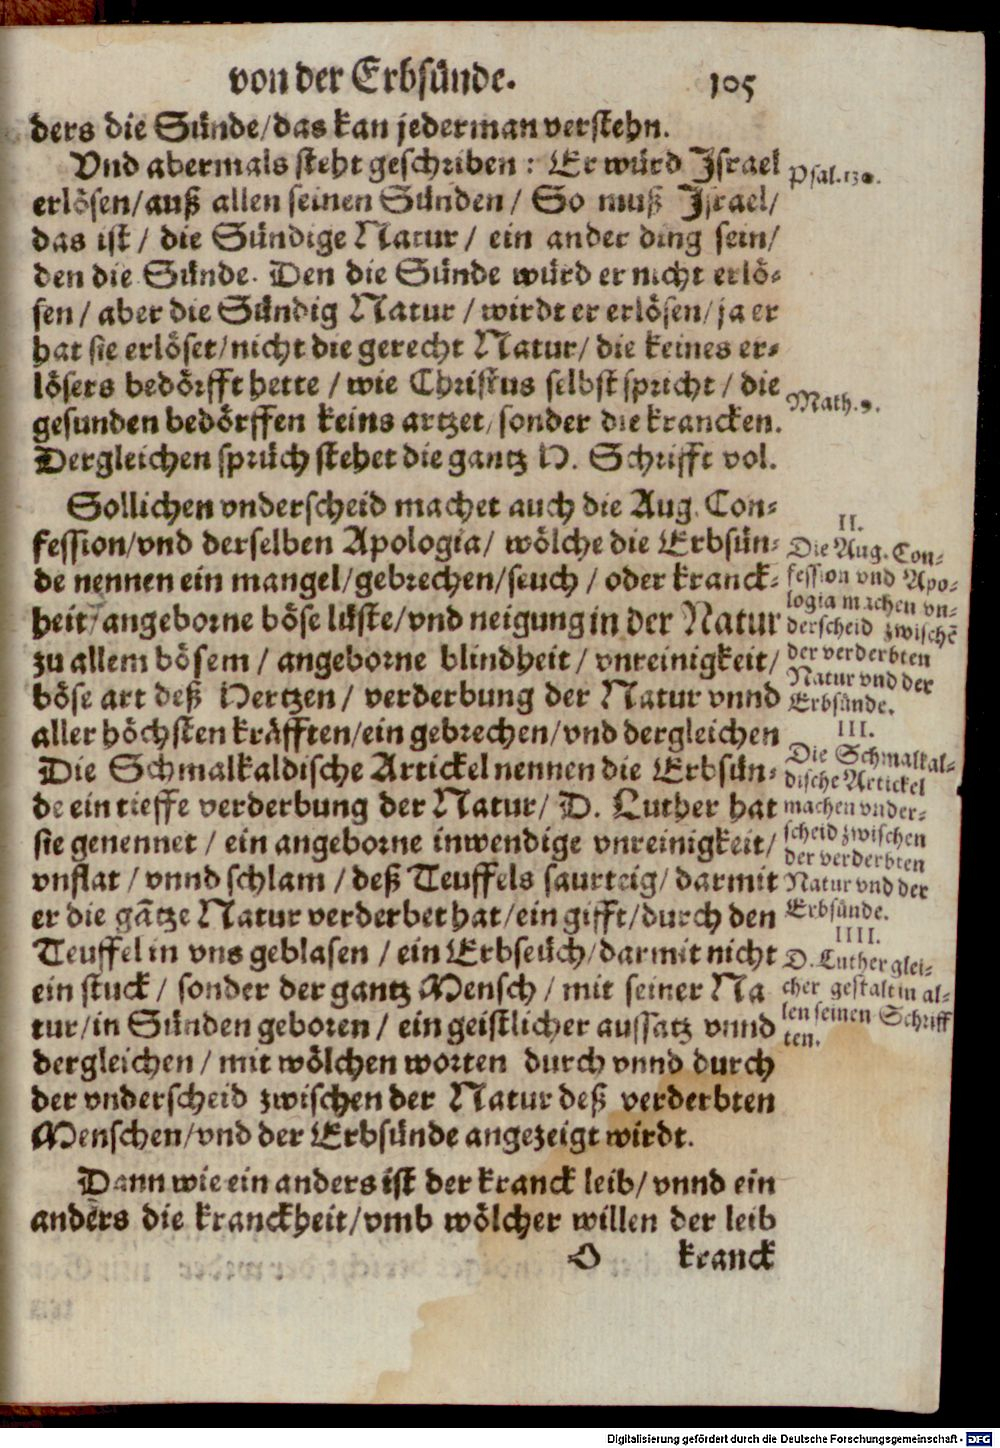 von der Erbsünde. 105
ders die Sünde/das kan jederman verstehn.
Vnd abermals steht geschriben: Er würd Israel
erlösen/auß allen seinen Sünden/ So muß Israel/
das ist/ die Sündige Natur/ ein ander ding sein/
den die Sünde. Den die Sünde würd er nicht erlö-
sen/ aber die Sündig Natur/wirdt er erlösen/ja er
hat sie erlöset/nicht die gerecht Natur/die keines er-
lösers bedörfft hette/wie Christus selbst spricht/die
gesunden bedörffen keins artzet/sonder die krancken.
Dergleichen sprüch stehet die gantz H. Schrifft vol.
Sollichen vnderscheid machet auch die Aug. Con-
fession/vnd derselben Apologia/ wölche die Erbsün-
de nennen ein mangel/gebrechen/seuch/oder kranck-
heit/angeborne böse lüste/vnd neigung in der Natur
zu allem bösem/ angeborne blindheit/ vnreinigkeit/
böse art deß Hertzen/ verderbung der Natur vnnd
aller höchsten kräfften/ein gebrechen/vnd dergleichen
Die Schmalkaldische Artickel nennen die Erbsün-
de ein tieffe verderbung der Natur/ D. Luther hat
sie genennet/ ein angeborne inwendige vnreinigkeit/
vnflat/vnnd schlam/deß Teuffels saurteig/darmit
er die gãtze Natur verderbet hat/ein gifft/durch den
Teuffel in vns geblasen/ein Erbseüch/darmit nicht
ein stuck/ sonder der gantz Mensch/mit seiner Na
tur/in Sünden geboren/ein geistlicher aussatz vnnd
dergleichen/mit wölchen worten durch vnnd durch
der vnderscheid zwischen der Natur deß verderbten
Menschen/vnd der Erbsünde angezeigt wirdt.
Dann wie ein anders ist der kranck leib/vnnd ein
anders die kranckheit/vmb wölcher willen der leib
O kranck
Psal. 130.
Math. 9.
II.
Die Aug. Con-
fession vnd Apo-
logia machen vn-
derscheid zwischẽ
der verderbten
Natur vnd der
Erbsünde.
III.
Die Schmalkal-
dische Artickel
machen vnder-
scheid zwischen
der verderbten
Natur vnd der
Erbsünde.
IIII.
D. Luther glei-
cher gestalt in al-
len seinen Schriff
ten.
Digitalisierung gefördert durch die Deutsche Forschungsgemeinschaft - DFG